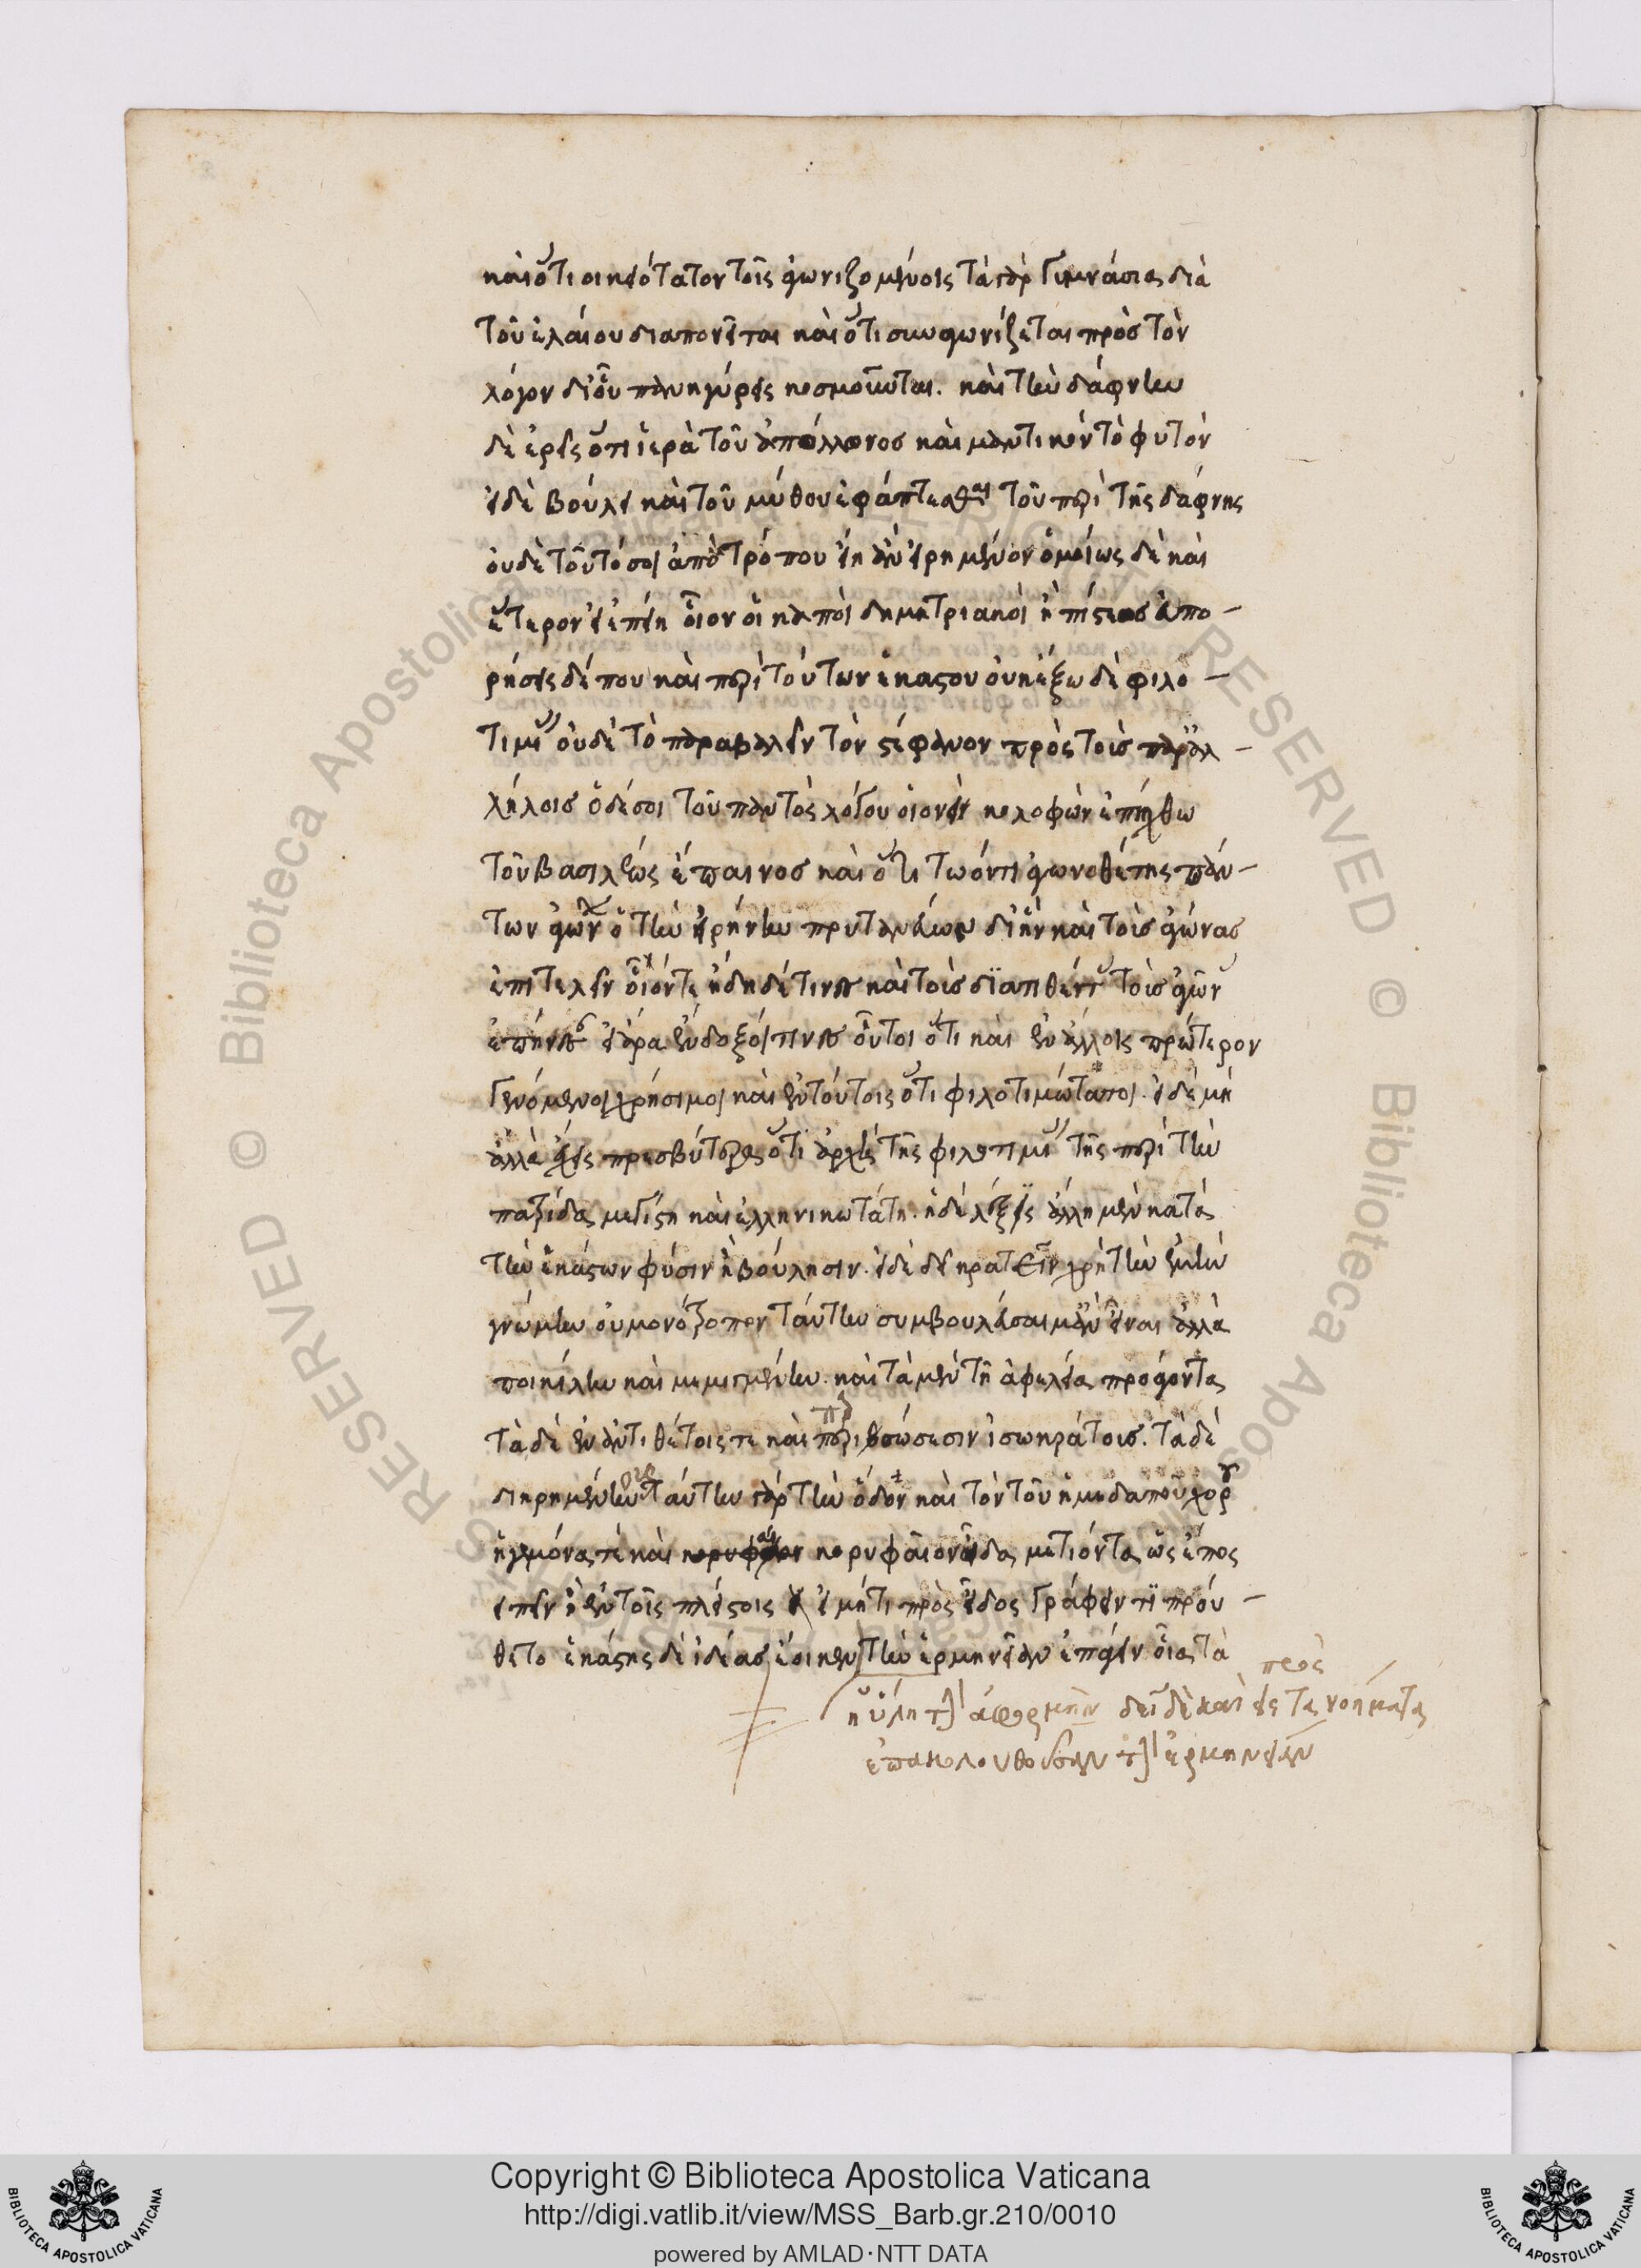 καὶ ὅτι οἰκειότατον τοῖς ἀγωνιζομένοις τὰ γὰρ γυμνάσια διὰ
τοῦ ἐλαίου διαπονεῖται καὶ ὅτι συναγωνίζεται πρὸσ τὸν
λόγον δι' οὗ πανηγύρεις κοσμοῦνται. καὶ τὴν δάφνην
δὲ ἐρεῖς ὅτι ἱερὰ τοῦ ἀπόλλωνοσ καὶ μαντικὸν τὸ φυτόν
εἰ δὲ βούλει καὶ τοῦ μύθου ἐφάπτεσθαι τοῦ περὶ τῆς δάφνης
οὐδὲ τοῦτό σοι ἀπὸ τρόπου εἴη ἂν εἰρημένον ὁμοίως δὲ καὶ
ἕτερον εἰ ἐπείη οἷον οἱ καρποὶ δημητριακοὶ ἢ πίτυοσ ἀπο-
ρήσεις δέ που καὶ περὶ τούτων ἑκάστου οὐκ ἔξω δὲ φιλο-
τιμίας οὐδὲ τὸ παραβαλεῖν τὸν στέφανον πρὸς τοὺσ παρ' ἄλ-
λήλοισ ὁ δέ σοι τοῦ παντὸς λόγου οἱονεὶ κολοφὼν ἐπήχθω
τοῦ βασιλέως ἔπαινοσ καὶ ὅτι τῶ ὄντι ἀγωνοθέτης πάν-
των ἀγώνων ὁ τὴν εἰρήνην πρυτανεύων δι' ἣν καὶ τοὺσ ἀγῶνασ
ἐπιτελεῖν οἷόντε ἤδη δέ τινεσ καὶ τοὺσ διατιθέντας τοὺσ ἀγῶνας
ἐπήνεσαν εἰ ἄρα ἔνδοξοί τινεσ οὗτοι ὅτι καὶ ἐν ἄλλοις πρώτερον
γενόμενοι χρήσιμοι καὶ ἐν τούτοις ὅτι φιλοτιμώτατοι. εἰ δὲ μὴ
ἀλλὰ πρεσβύτερας ὅτι ἀρχὴ τῆς φιλοτιμίας τῆς περὶ τὴν
πατρίδα μεγίστη καὶ ἑλληνικωτάτη. ἡ δὲ λέξις ἄλλη μὲν κατὰ
τὴν ἑκάστων φύσιν ἢ βούλησιν. εἰ δὲ δεῖ κρατεῖν χρὴ τὴν ἐμὴν
γνώμην οὐ μονότροπον ταύτην συμβουλεύσαιμ' ἂν εἶναι ἀλλὰ
ποικίλην καὶ μεμιγμένην. καὶ τὰ μὲν τῆ ἀφελεία προάγοντα
τὰ δὲ ἐν ἀντιθέτοις τε καὶ περιβώσεσιν ἰσωκράτουσ. τὰ δὲ
διηρημένην ταύτην γὰρ τὴν ὁδὸν καὶ τὸν τοῦ ἡμεδαποῦ χοροῦ
ἡγεμόνα τὲ καὶ κορυφαῖον κορυφαῖον οἶδα μετιόντα ὡς ἔπος
εἰπεῖν ἢ ἐν τοῖς πλείστοις εἰ μήτι πρὸς εἶδος γράφειν τι πρού-
θετο ἑκάστης δὲ ἰδέασ ἔοικεν τὴν ἑρμηνείαν ἐπάγειν οἷα τὰ
ἡ ὕλη τὴν ἀφορμὴν δεῖ δὲ καὶ πρὸς τὰ νοήματα
ἐπακολουθοῦσαν τὴν ἑρμηνείαν
Copyright © Biblioteca Apostolica Vaticana
http://digi.vatlib.it/view/MSS_Barb.gr.210/0010
powered by AMLAD·NTT DATA
BIBLIOTECA APOSTOLICA VATICANA
BIBLIOTECA APOSTOLICA VATICANA
RESERVED © Biblioteca Apostolica